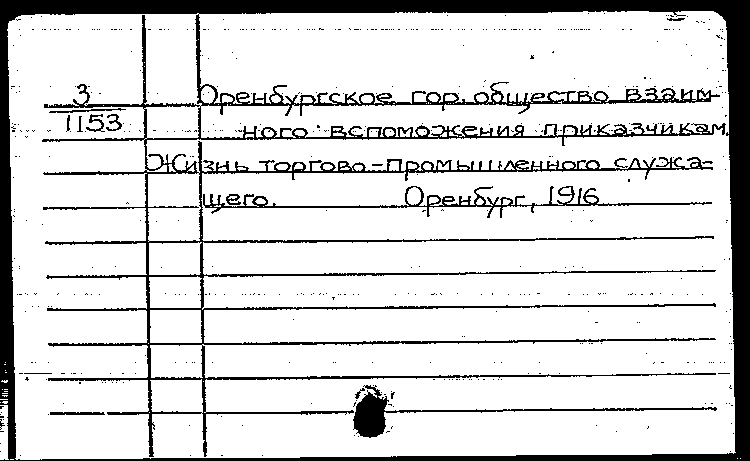 3 Оренбургское гор. общество взаим-
1153 ного вспоможения приказчикам
Жизнь торгово-промышленного служа-
щего. Оренбург, 1916